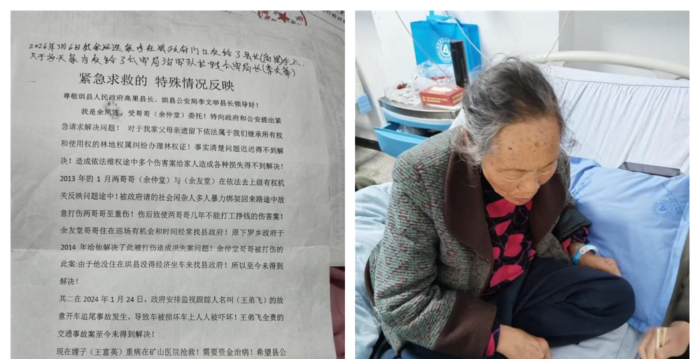 紧急求救的 特殊情况反映
尊敬珙县人民政府高果县长、珙县公安局李文举县长领导好!
我是余 受哥哥(余仲堂)委托!特向政府和公安提出紧
急请求解决问题! 对于我家父母亲遗留下依法属于我们继承所有权
和使用权的林地权属纠纷办理林权证!事实清楚问题迟迟得不到解
决!造成依法维权途中多个伤害案给家人造成各种损失得不到解决!
2013 年的 1 月两哥哥(余仲堂)与(余友堂)在依法去上级有权机
关反映问题途中!被政府请的社会闲杂人多人暴力绑架回来路途中故
意打伤两哥哥至重伤!伤后致使两哥哥几年不能打工挣钱的伤害案!
余友堂哥哥住在巡场有机会和时间经常找县政府!原下罗乡政府于
2014 年给他解决了此被打伤造成损失案问题!余仲堂哥哥被打伤的
此案:由于他没住在珙县没得经济坐车来找县政府!所以至今未得到
解决!
其二在 2024 年 1 月 24 日,政府安排监视跟踪人名叫(王弟飞)的故
意开车追尾事故发生,导致车被损坏车上人人被吓坏!王弟飞全责的
交通事故案至今未得到解决!
现在嫂子(王富英)重病在矿山医院抢救!需要资金治病!希望县公